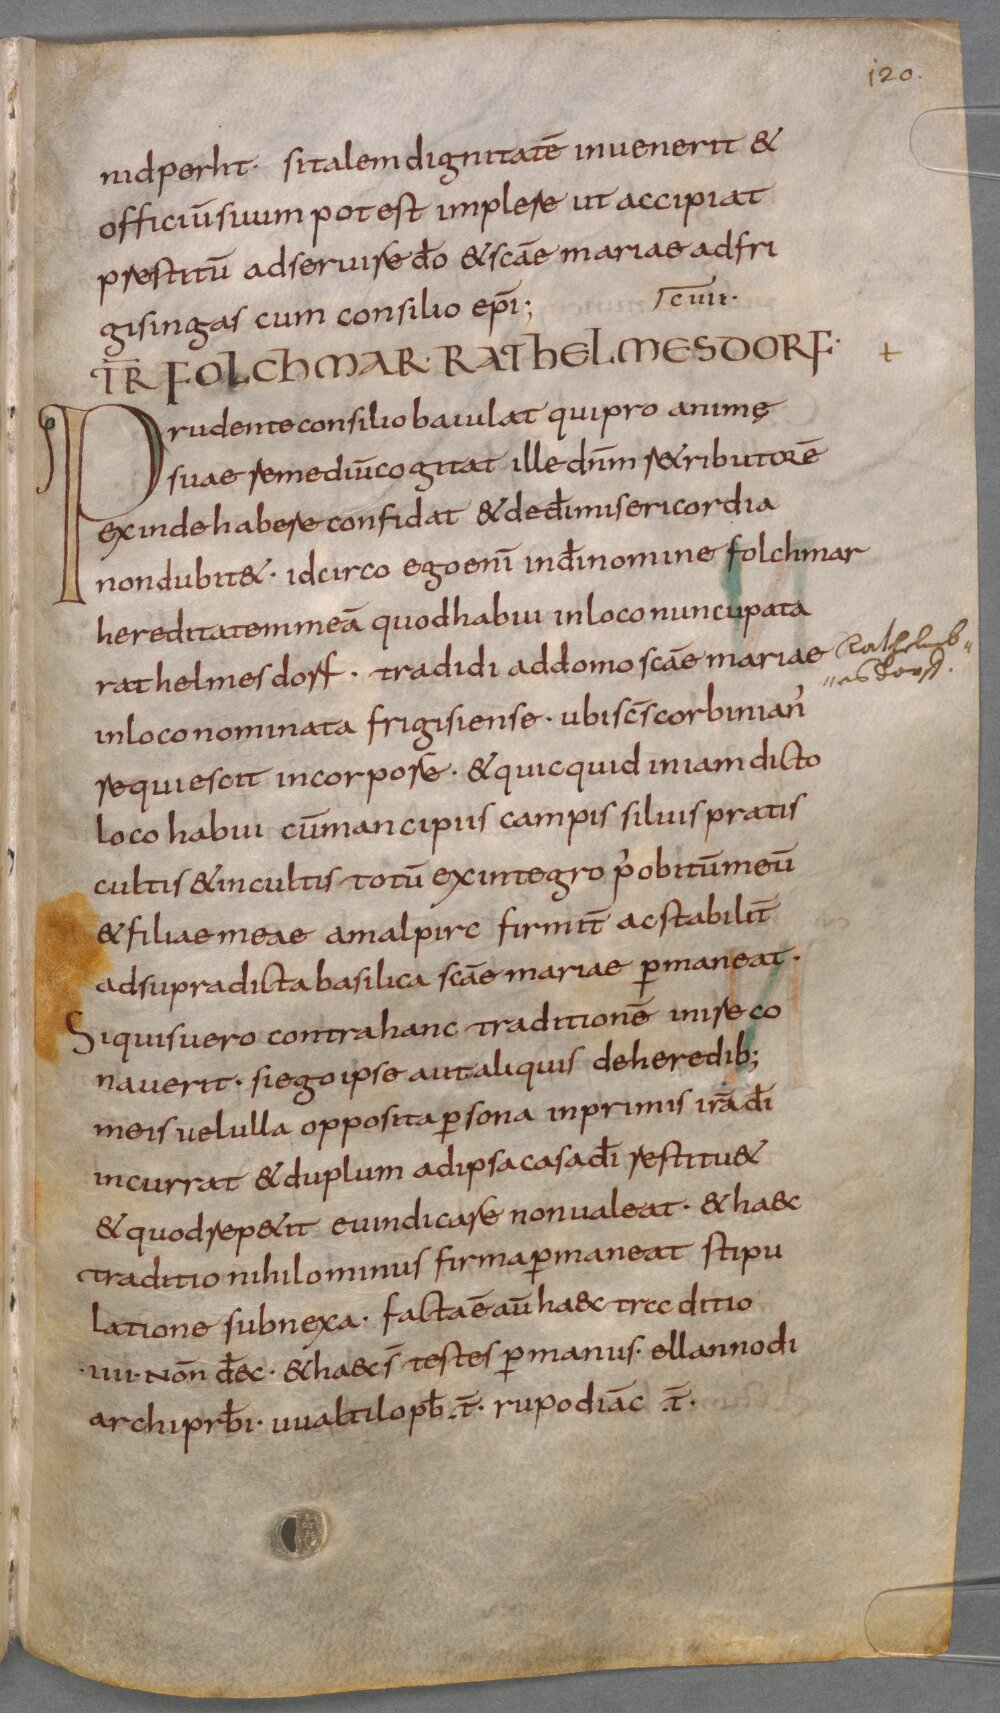 120.
nidperht· sitalem dignitatē inuenerit &
officiū suum potest implere ut accipiat
prestitū ad seruire d̄o & scāe mariae ad fri
gisingas cum consilio ep̄i;
TR̄ FOLCHMAR· RATHELMESDORF· +
Prudente consilio baiulat qui pro animę
suae remediū cogitat ille dn̄m r&ributorē
exinde habere confidat & de d̄i misericordia
non dubit&· idcirco ego eni̅ in d̄i nomine folchmar
hereditatem meā quod habui in loco nuncupata
rathelmesdorf· tradidi ad domo scāe mariae
Rathelmb"
"esdorff.
in loco nominata frigisiense· ubi sc̄s corbinian̓
requiescit in corpore· & quicquid in iam dicto
loco habui cū mancipiis campis siluis pratis
cultis & incultis totū ex integro p̓ obitū meū
& filiae meae amalpirc firmit̄ ac stabilit̄
ad supradicta basilica scāe mariae p̄maneat·
Si quis uero contra hanc traditionē inire co
nauerit· si ego ipse aut aliquis de heredib;
meis uel ulla opposita p̄sona inprimis irā d̄i
incurrat & duplum ad ipsa casa d̄i restitu&
& quod rep&it euindicare non ualeat· & ha&c
traditio nihilominus firma p̄maneat stipu
latione subnexa· facta ē aū ha&c traditio
·iiii· noñ d̄&c· & ha&c s̄ testes p̄ manus· ellannodi
archipr̄bi· uualtilo pb̄ ·t̄· rupo diāc ·t̄·